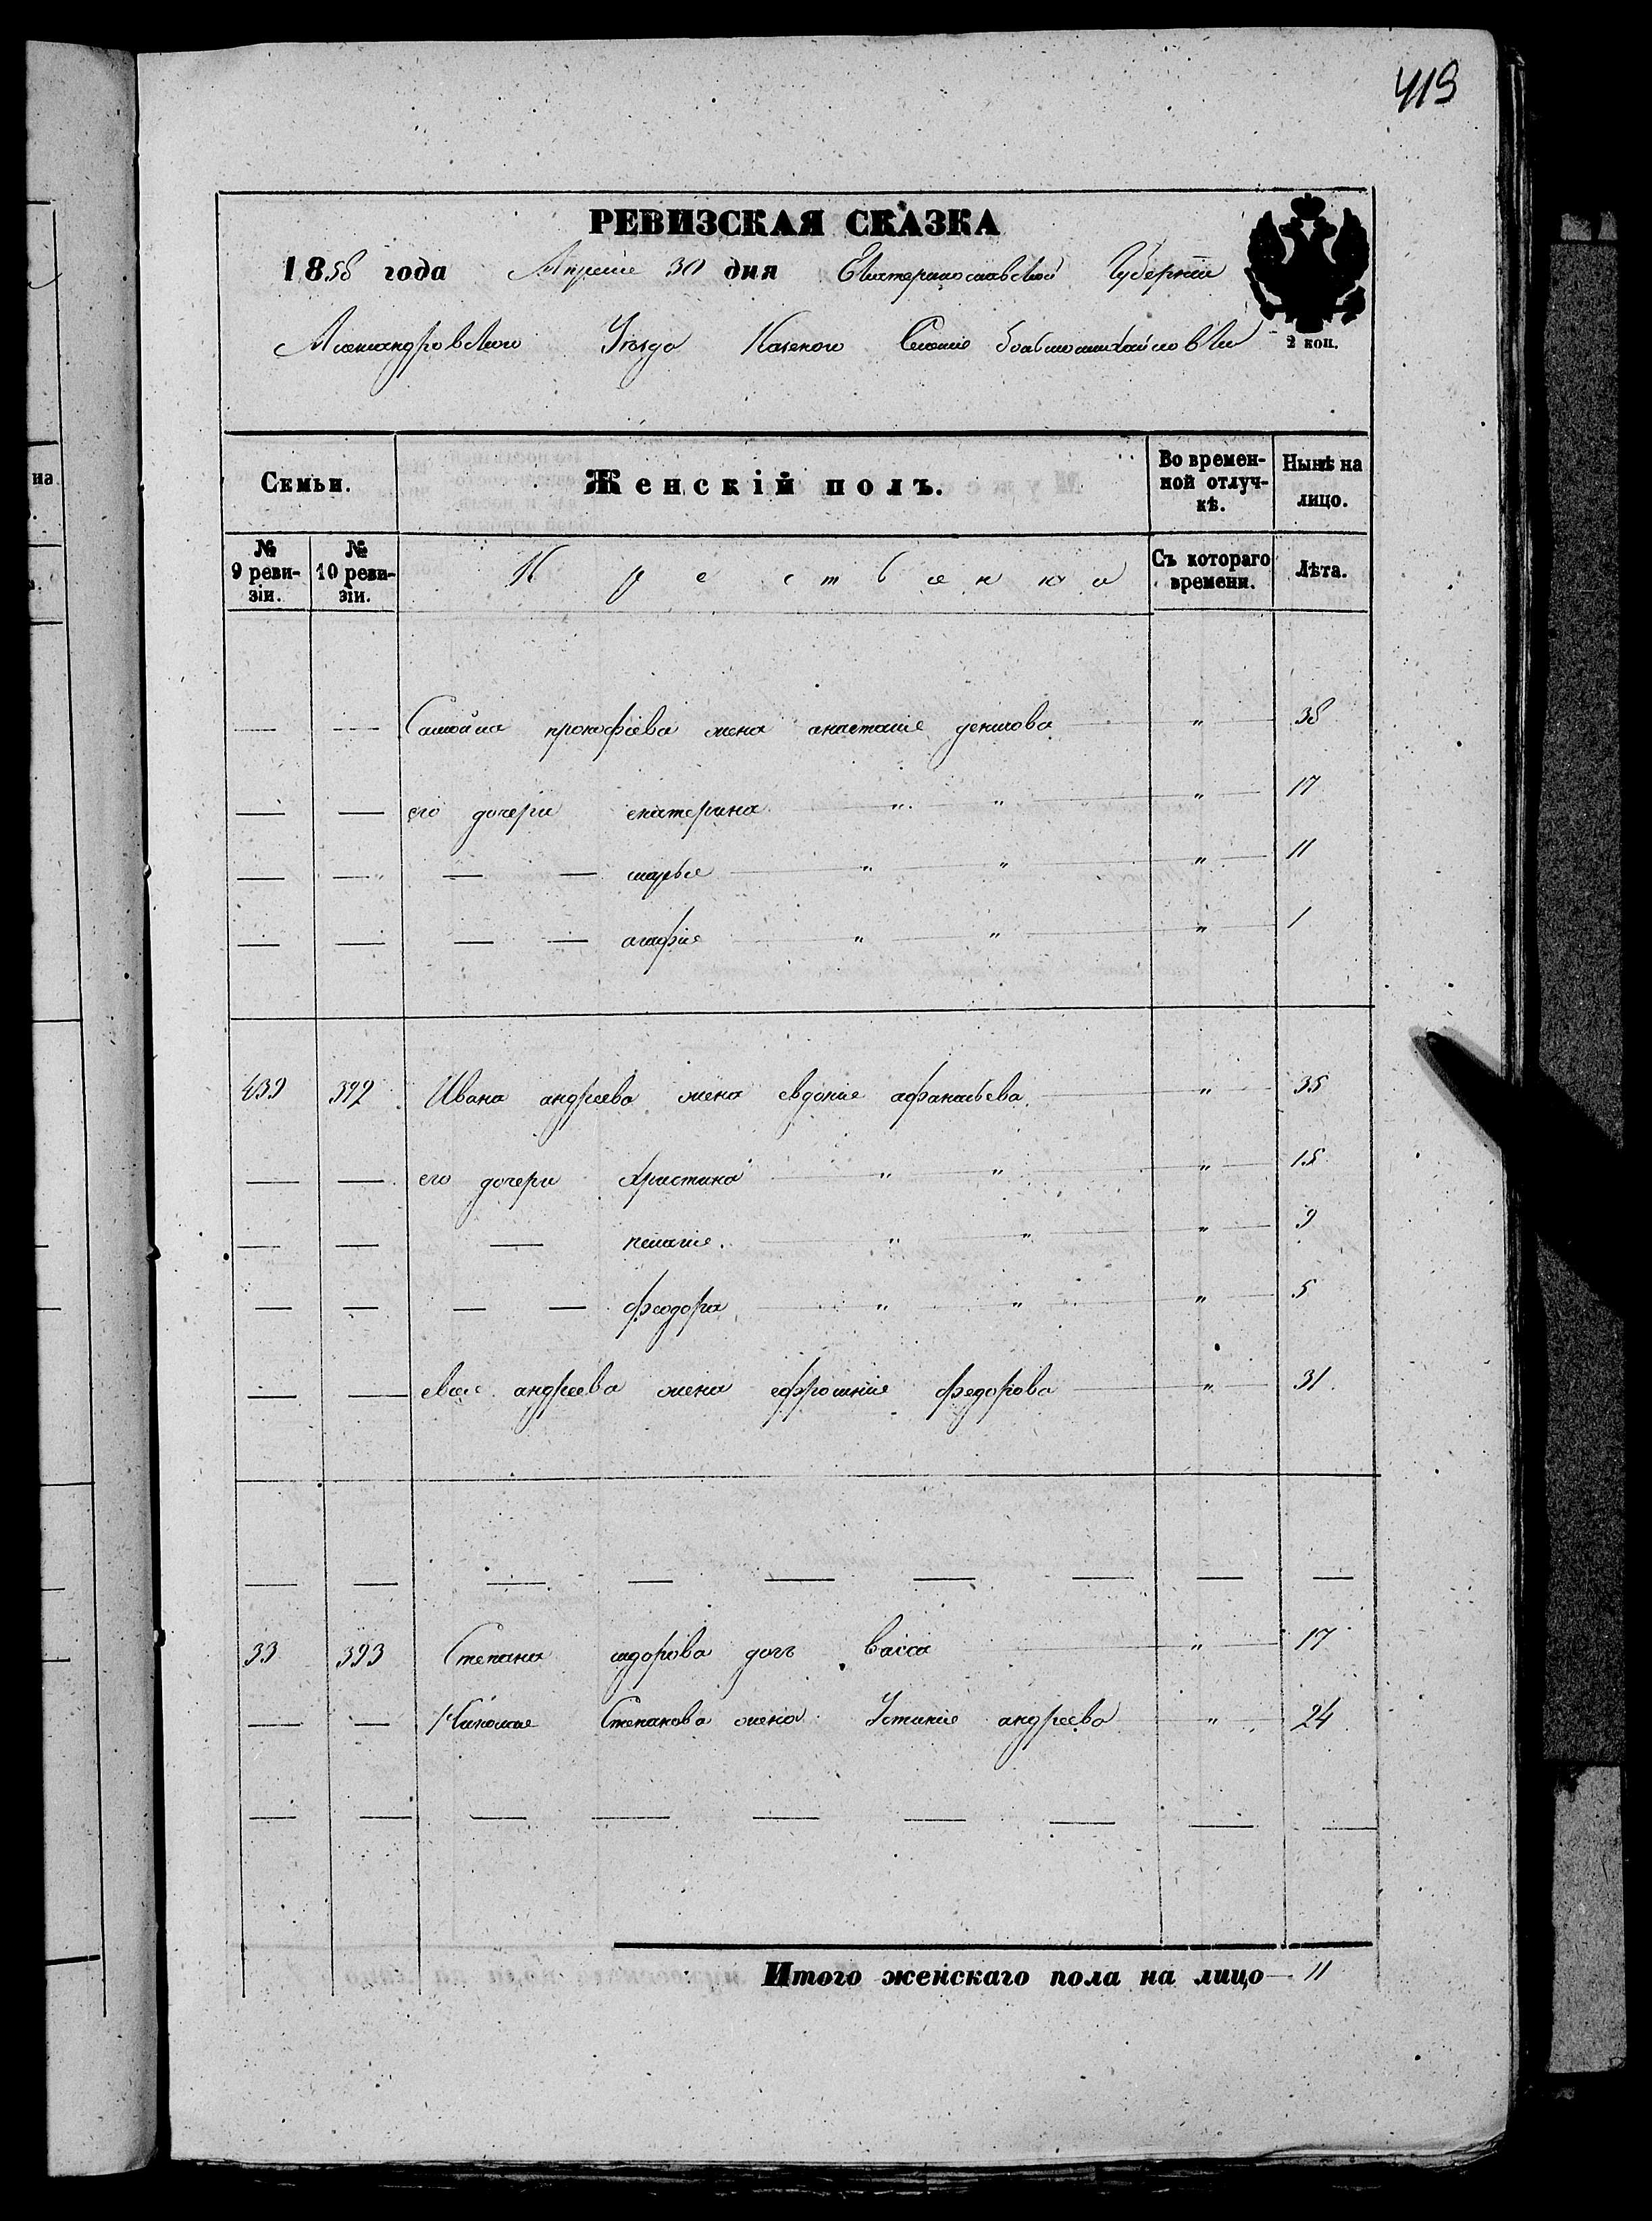 419
РЕВИЗСКАЯ СКАЗКА
1858 года Апреля 30 дня Екатеринославской Губернiи
Александровского Уѣзда Казеного Селенiя большомихайловки
2 коп.
Семьи. Женскiй полъ. Во времен-ной отлуч-кѣ. Нынѣ на лицо.
№ 9 реви-зiи. № 10 реви-зiи. Крестьянка Съ котораго времени. Лѣта.
— — Самойла прокофiева жена анастасiя денисова " 38
— — его дочери екатерина " " " 17
— — — — марья " " " 11
— — — — агафiя " " " 1
439 392 Ивана андреева жена евдокiя афанасьева " 35
— — его дочери христина " " " 15
— — — пелагiя " " " 9
— — — — феодора " " " 5
— — андреева жена ефросинiя федорова " 31
— — — — — — — — —
33 393 Степана сидорова дочь васса " 17
— — Николая Степанова жена Устинiя андреева " 24
— — — — — — — — —
Итого женскаго пола на лицо — 11
на